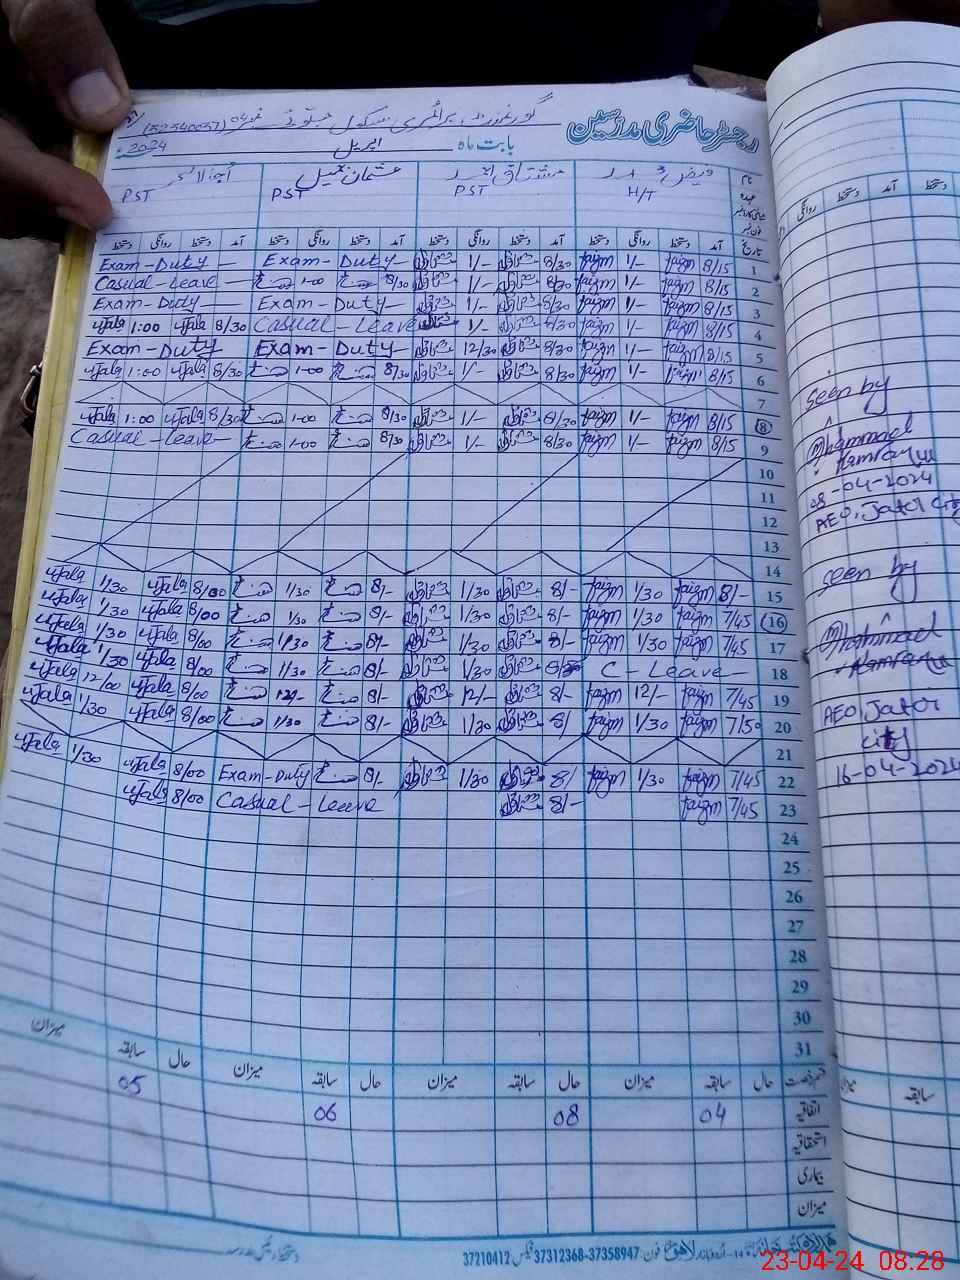 رجسٹر حاضری مدرسین
گورنمنٹ پرائمری سکول
بابت ماہ اپریل 2024
نام فیض احمد مشتاق احمد عثمان جمیل
عہدہ H/T PST PST PST
تاریخ آمد دستخط روانگی دستخط آمد دستخط روانگی دستخط آمد دستخط روانگی دستخط آمد دستخط روانگی دستخط
1 8/15 faizm 1/- faizm 8/30 مشتاق 1/- مشتاق Exam-Duty Exam-Duty
2 8/15 faizm 1/- faizm 8/30 مشتاق 1/- مشتاق 8/30 1-00 Casual-Leave
3 8/15 faizm 1/- faizm 8/30 مشتاق 1/- مشتاق Exam-Duty Exam-Duty
4 8/15 faizm 1/- faizm 8/30 مشتاق 1/- مشتاق Casual-Leave 8/30 ujala 1:00 ujala
5 8/15 faizm 1/- faizm 8/30 مشتاق 12/30 مشتاق Exam-Duty Exam-Duty
6 8/15 faizm 1/- faizm 8/30 مشتاق 1/- مشتاق 8/30 1-00 8/30 ujala 1:00 ujala
7
8 8/15 faizm 1/- faizm 8/30 مشتاق 1/- مشتاق 8/30 1-00 8/30 ujala 1:00 ujala
9 8/15 faizm 1/- faizm 8/30 مشتاق 1/- مشتاق 8/30 1-00 Casual-Leave
10
11
12
13
14
15 8/- faizm 1/30 faizm 8/- مشتاق 1/30 مشتاق 8/- 1/30 8/00 ujala 1/30 ujala
16 7/45 faizm 1/30 faizm 8/- مشتاق 1/30 مشتاق 8/- 1/30 8/00 ujala 1/30 ujala
17 7/45 faizm 1/30 faizm 8/- مشتاق 1/30 مشتاق 8/- 1/30 8/00 ujala 1/30 ujala
18 C-Leave مشتاق 1/30 مشتاق 8/- 1/30 8/00 ujala 1/30 ujala
19 7/45 faizm 12/- faizm 8/- مشتاق 12/- مشتاق 8/- 12/- 8/00 ujala 12/00 ujala
20 7/50 faizm 1/30 faizm 8/ مشتاق 1/30 مشتاق 8/- 1/30 8/00 ujala 1/30 ujala
21
22 7/45 faizm 1/30 faizm 8/ مشتاق 1/30 مشتاق 8/- Exam-Duty 8/00 ujala 1/30 ujala
23 7/45 faizm 8/- مشتاق Casual-Leave 8/00 ujala
24
25
26
27
28
29
30
31
قسم رخصت حال سابقہ میزان حال سابقہ میزان حال سابقہ میزان حال سابقہ میزان
اتفاقیہ 04 08 06 05
استحقاقیہ
بیماری
میزان
لاہور فون: 37312368-37358947 فیکس 37210412
seen by
08-04-2024
AEO, Jatoi City
seen by
AEO, Jatoi
city
16-04-2024
روانگی دستخط آمد دستخط
میزان سابقہ
23-04-24 08:28